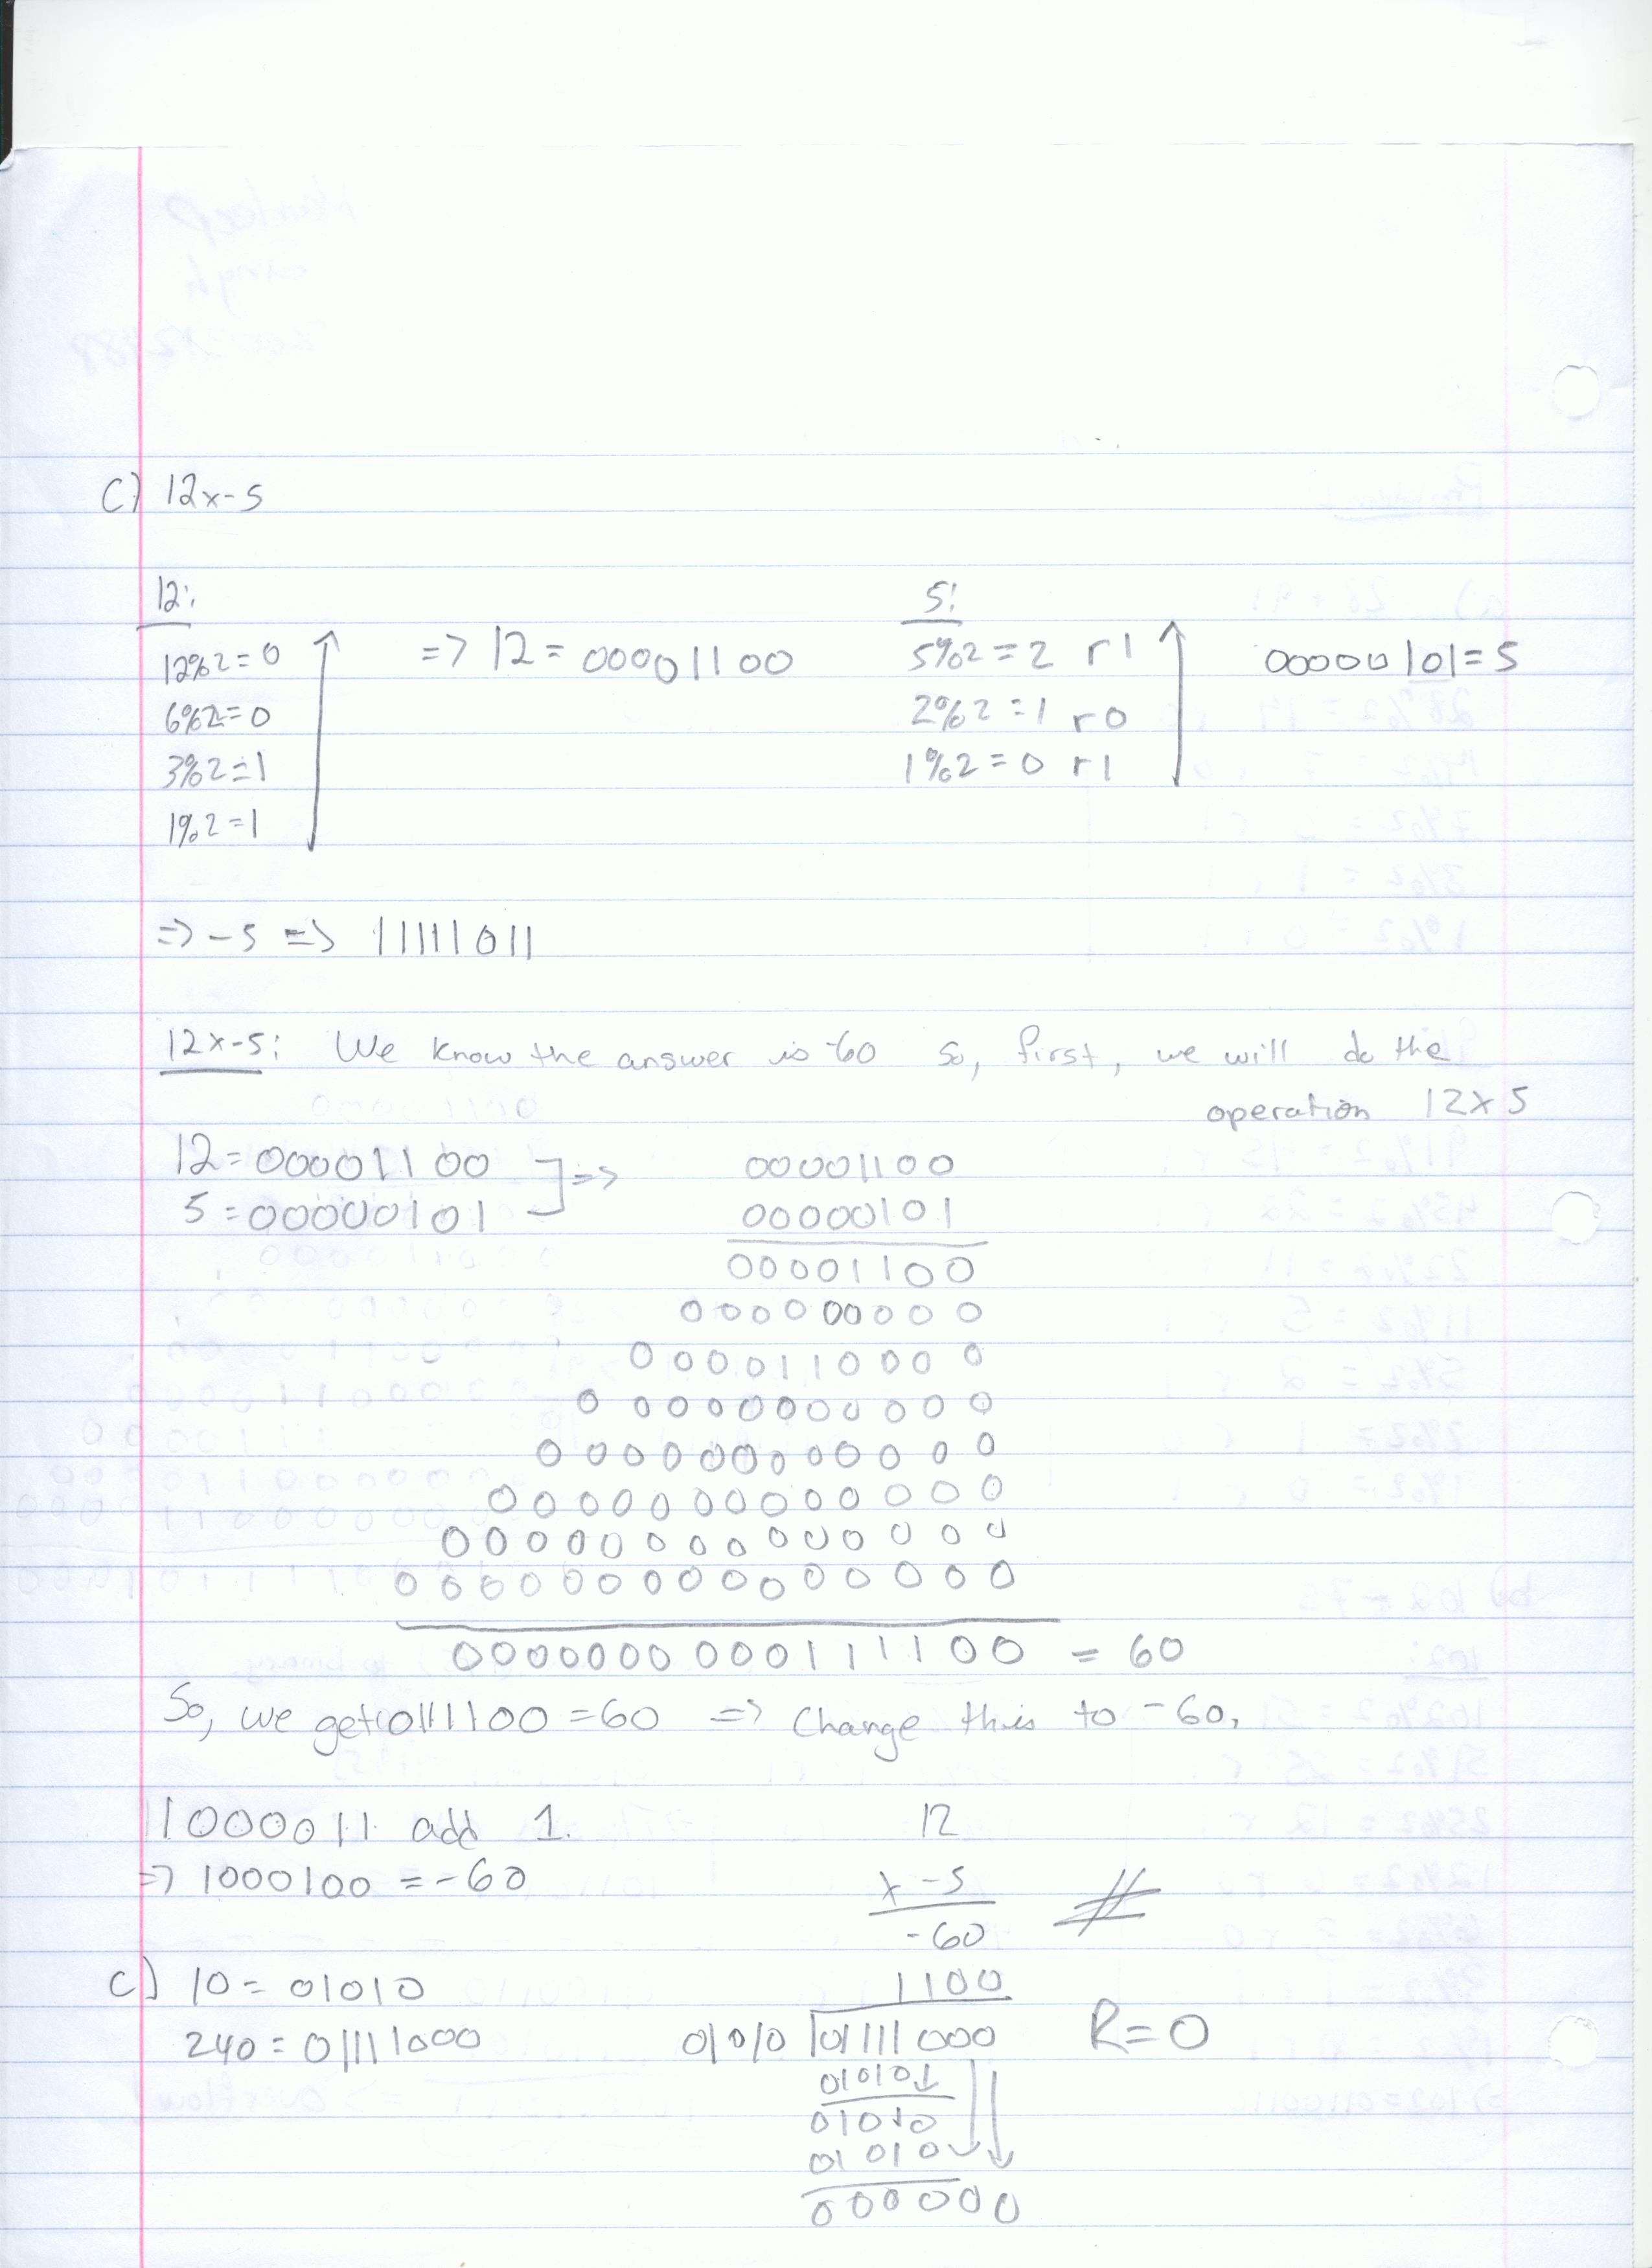 C) 12x-5
12:
12%2=0
6%2=0
3%2=1
1%2=1
=> 12 = 00001100
5:
5%2=2 r1
2%2=1 r0
1%2=0 r1
00000101=5
=> -5 => 11111011
12x-5: We know the answer is -60 So, first, we will do the
operation 12x5
12=00001100
5=00000101
=>
00001100
00000101
00001100
000000000
0000110000
00000000000
000000000000
0000000000000
00000000000000
000000000000000
0000000000111100 = 60
So, we get 0111100 =60 => Change this to -60.
11000011 add 1.
=> 1000100 = -60
12
x -5
-60
C) 10 = 01010
240 = 01111000
1100
01010 01111000
R=0
01010
01010
01010
000000